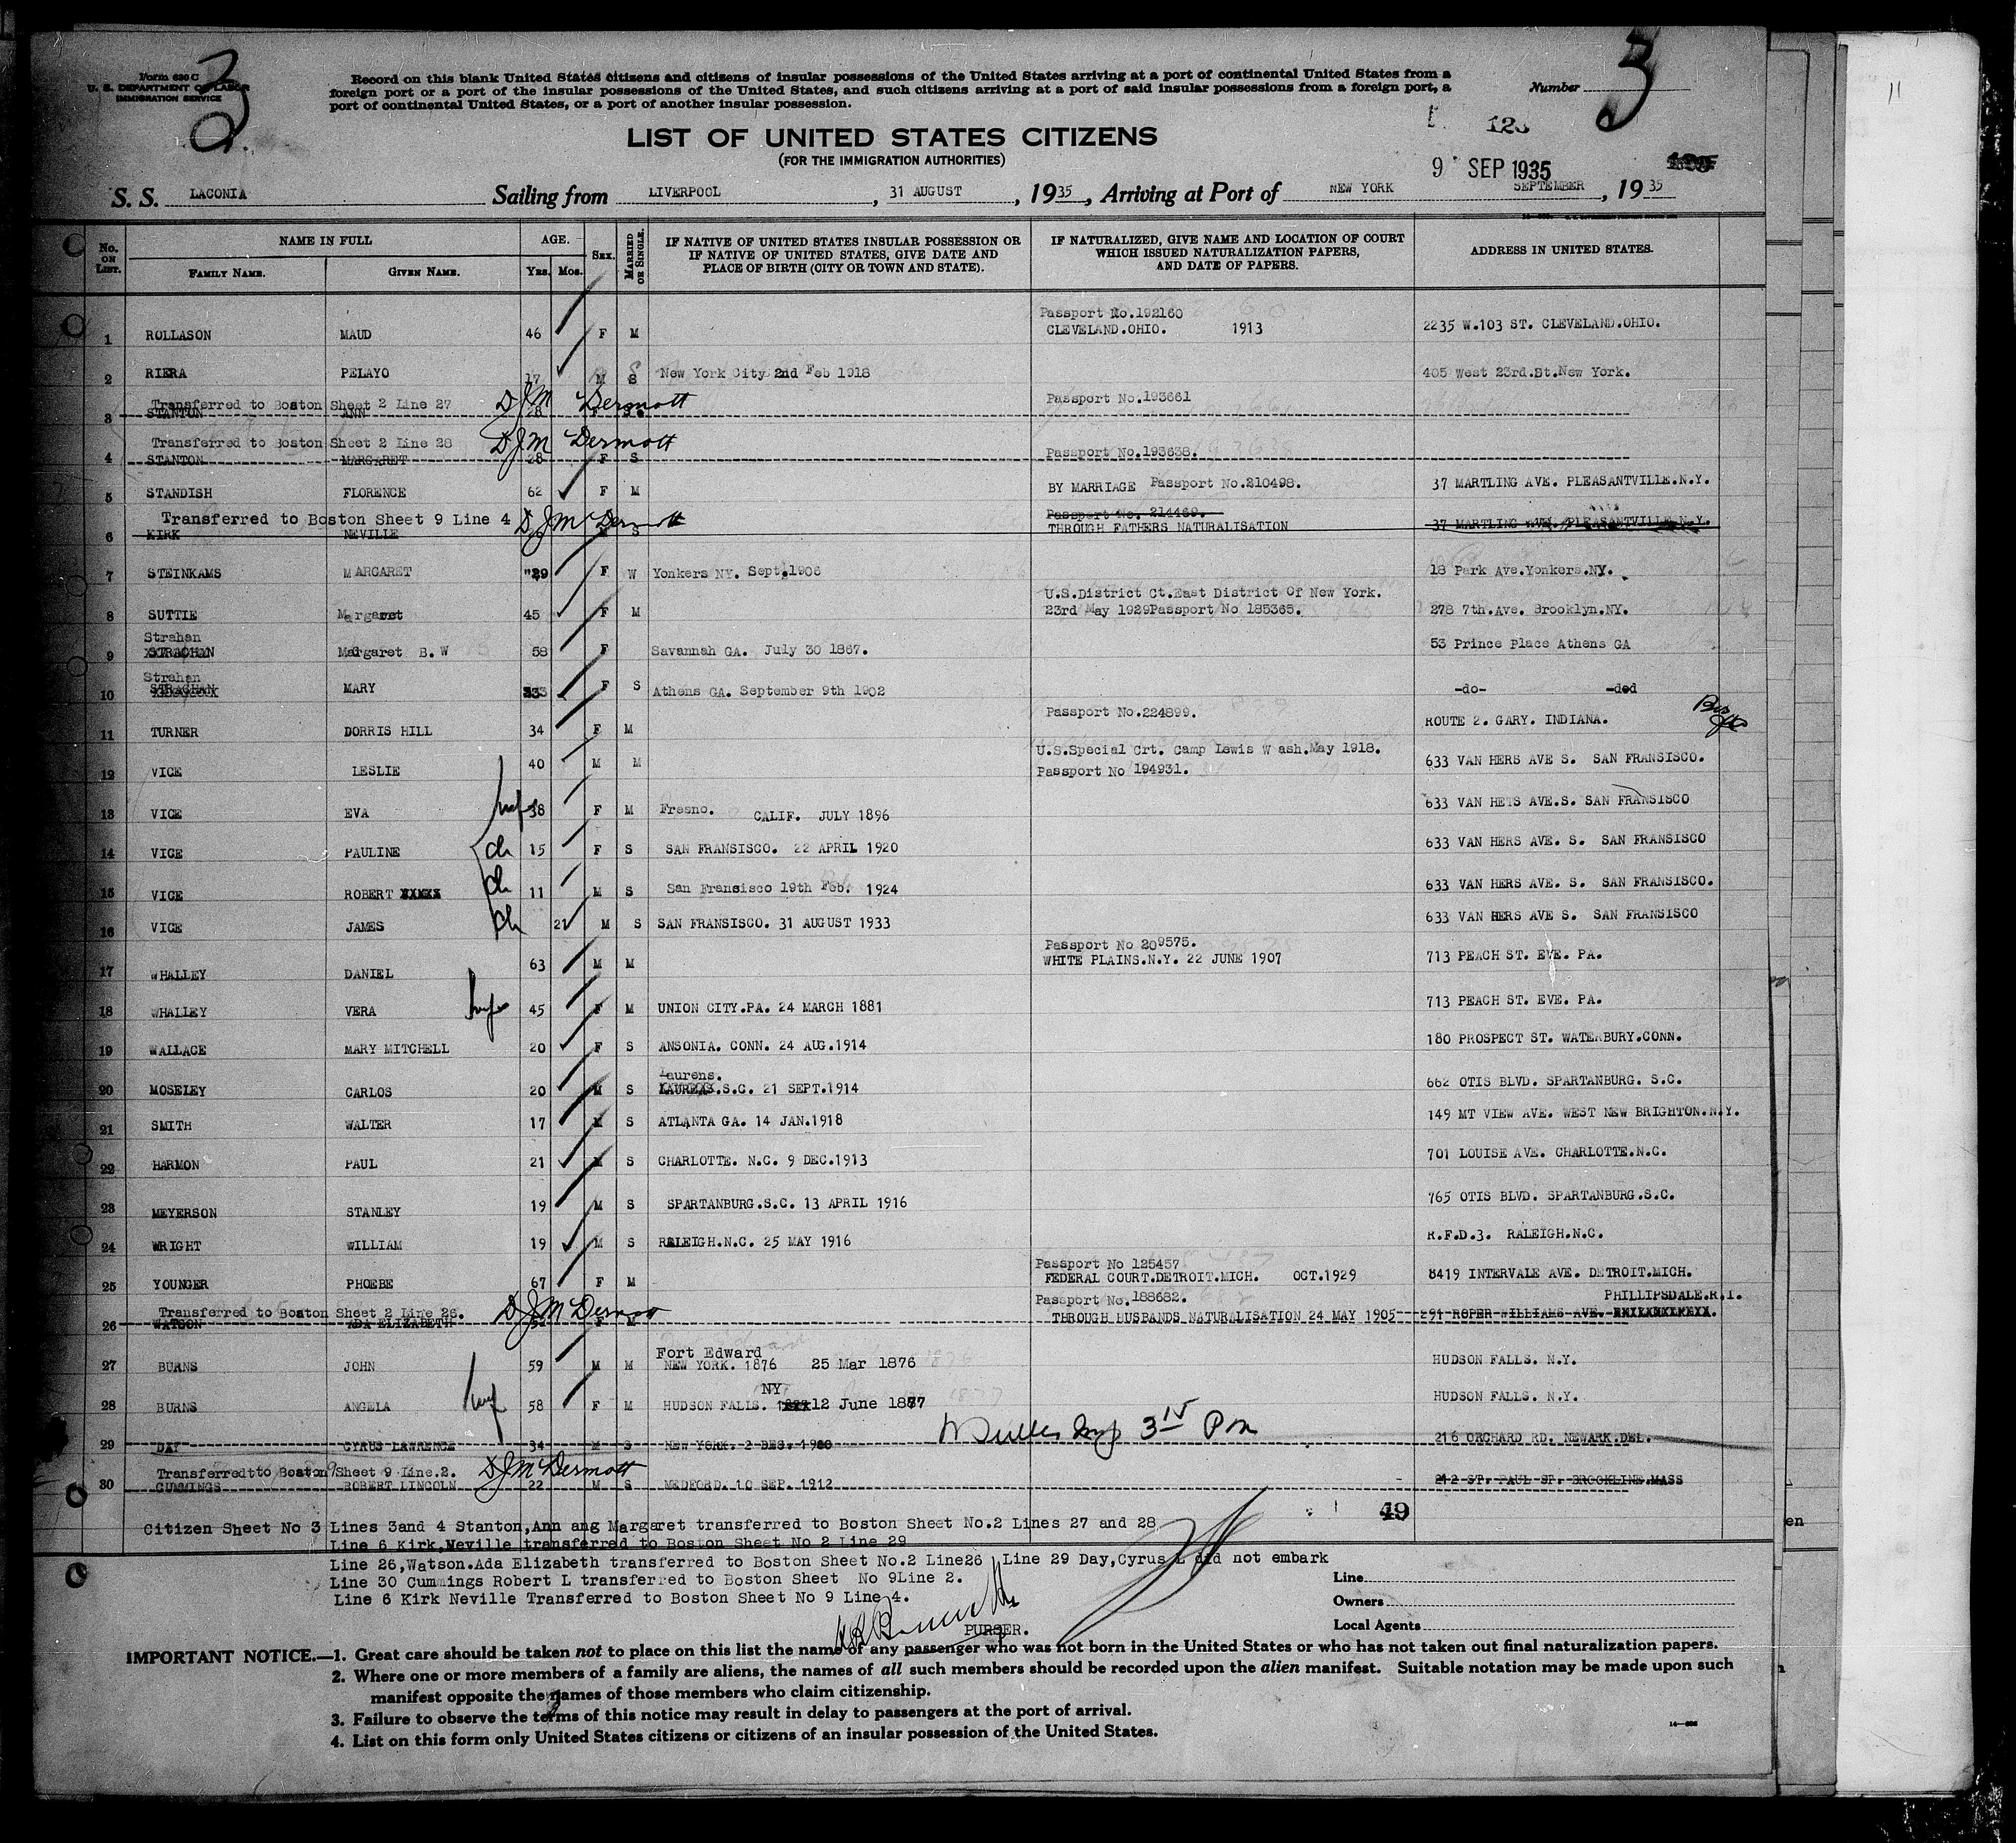 Form 630 C
U. S. DEPARTMENT OF LABOR
IMMIGRATION SERVICE
3
Record on this blank United States citizens and citizens of insular possessions of the United States arriving at a port of continental United States from a
foreign port or a port of the insular possessions of the United States, and such citizens arriving at a port of said insular possessions from a foreign port, a
port of continental United States, or a port of another insular possession.
Number 3
LIST OF UNITED STATES CITIZENS
(FOR THE IMMIGRATION AUTHORITIES)
9 SEP 1935
S. S. LACONIA Sailing from LIVERPOOL, 31 AUGUST, 1935, Arriving at Port of NEW YORK SEPTEMBER, 1935
No. ON LIST. NAME IN FULL FAMILY NAME. GIVEN NAME. AGE. Yrs. Mos. SEX. MARRIED OR SINGLE.
IF NATIVE OF UNITED STATES INSULAR POSSESSION OR IF NATIVE OF UNITED STATES, GIVE DATE AND PLACE OF BIRTH (CITY OR TOWN AND STATE).
IF NATURALIZED, GIVE NAME AND LOCATION OF COURT WHICH ISSUED NATURALIZATION PAPERS, AND DATE OF PAPERS.
ADDRESS IN UNITED STATES.
Passport No.192160
1 ROLLASON MAUD 46 F M CLEVELAND.OHIO. 1913 2235 W.103 ST. CLEVELAND.OHIO.
2 RIERA PELAYO 17 M S New York City 2nd Feb 1918 405 West 23rd.St.New York.
Transferred to Boston Sheet 2 Line 27 DJM Dermott Passport No.193661
3 STANTON ANN 28 F S
Transferred to Boston Sheet 2 Line 28 DJM Dermott
4 STANTON MARGARET 28 F S Passport No.193638.
5 STANDISH FLORENCE 62 F M BY MARRIAGE Passport No.210498. 37 MARTLING AVE. PLEASANTVILLE.N.Y.
Transferred to Boston Sheet 9 Line 4 DJM Dermott Passport No. 214469.
6 KIRK NEVILLE S THROUGH FATHERS NATURALISATION 37 MARTLING AVE. PLEASANTVILLE N.Y.
7 STEINKAMS MARGARET 29 F W Yonkers NY. Sept.1906 18 Park Ave.Yonkers.NY.
U.S.District Ct.East District Of New York.
8 SUTTIE Margaret 45 F M 23rd May 1929Passport No 185365. 278 7th.Ave. Brooklyn.NY.
Strahan
9 STRACHAN Margaret B. W 58 F Savannah GA. July 30 1867. 53 Prince Place Athens GA
Strahan
10 STRACHAN MARY 33 F S Athens GA. September 9th 1902 -do- -ded
Passport No.224899.
11 TURNER DORRIS HILL 34 F M ROUTE 2. GARY. INDIANA.
U.S.Special Crt. Camp Lewis W ash.May 1918.
12 VICE LESLIE 40 M M Passport No 194931. 633 VAN HERS AVE S. SAN FRANSISCO.
13 VICE EVA wf 38 F M Fresno. CALIF. JULY 1896 633 VAN HETS AVE.S. SAN FRANSISCO
14 VICE PAULINE ch 15 F S SAN FRANSISCO. 22 APRIL 1920 633 VAN HERS AVE. S. SAN FRANSISCO
15 VICE ROBERT ch 11 M S San Fransisco 19th Feb. 1924 633 VAN HERS AVE. S. SAN FRANSISCO.
16 VICE JAMES ch 21 M S SAN FRANSISCO. 31 AUGUST 1933 633 VAN HERS AVE S. SAN FRANSISCO
Passport No 209575.
17 WHALLEY DANIEL 63 M M WHITE PLAINS.N.Y. 22 JUNE 1907 713 PEACH ST. EVE. PA.
18 WHALLEY VERA wife 45 F M UNION CITY.PA. 24 MARCH 1881 713 PEACH ST. EVE. PA.
19 WALLACE MARY MITCHELL 20 F S ANSONIA. CONN. 24 AUG.1914 180 PROSPECT ST. WATERBURY.CONN.
Laurens.
20 MOSELEY CARLOS 20 M S S.C. 21 SEPT.1914 662 OTIS BLVD. SPARTANBURG. S.C.
21 SMITH WALTER 17 M S ATLANTA GA. 14 JAN.1918 149 MT VIEW AVE. WEST NEW BRIGHTON.N.Y.
22 HARMON PAUL 21 M S CHARLOTTE. N.C. 9 DEC.1913 701 LOUISE AVE. CHARLOTTE.N.C.
23 MEYERSON STANLEY 19 M S SPARTANBURG.S.C. 13 APRIL 1916 765 OTIS BLVD. SPARTANBURG.S.C.
24 WRIGHT WILLIAM 19 M S RALEIGH.N.C. 25 MAY 1916 R.F.D.3. RALEIGH.N.C.
Passport No 125457
25 YOUNGER PHOEBE 67 F M FEDERAL COURT.DETROIT.MICH. OCT.1929 8419 INTERVALE AVE. DETROIT.MICH.
Transferred to Boston Sheet 2 Line 26. DJM Dermott Passport No.188682. PHILLIPSDALE.R.I.
26 WATSON ADA ELIZABETH F M THROUGH HUSBANDS NATURALISATION 24 MAY 1905 291 ROPER WILLIAMS AVE.
Fort Edward
27 BURNS JOHN 59 M M NEW YORK. 1876 25 Mar 1876 HUDSON FALLS. N.Y.
NY
28 BURNS ANGELA wf 58 F M HUDSON FALLS. 12 June 1877 HUDSON FALLS. N.Y.
29 DAY CYRUS LAWRENCE 34 M S NEW YORK. 2 DEC. 1900 216 ORCHARD RD. NEWARK.DEL.
Transferred to Boston Sheet 9 Line.2. DJM Dermott
30 CUMMINGS ROBERT LINCOLN 22 M S MEDFORD. 10 SEP. 1912 212 ST. PAUL ST. BROOKLINE.MASS
49
Citizen Sheet No 3 Lines 3and 4 Stanton,Ann ang Margaret transferred to Boston Sheet No.2 Lines 27 and 28
Line 6 Kirk,Neville transferred to Boston Sheet No 2 Line 29
Line 26,Watson.Ada Elizabeth transferred to Boston Sheet No.2 Line26 Line 29 Day,Cyrus L did not embark
Line 30 Cummings Robert L transferred to Boston Sheet No 9Line 2.
Line 6 Kirk Neville Transferred to Boston Sheet No 9 Line 4.
PURSER.
Line
Owners
Local Agents
IMPORTANT NOTICE.—1. Great care should be taken not to place on this list the name of any passenger who was not born in the United States or who has not taken out final naturalization papers.
2. Where one or more members of a family are aliens, the names of all such members should be recorded upon the alien manifest. Suitable notation may be made upon such
manifest opposite the names of those members who claim citizenship.
3. Failure to observe the terms of this notice may result in delay to passengers at the port of arrival.
4. List on this form only United States citizens or citizens of an insular possession of the United States.